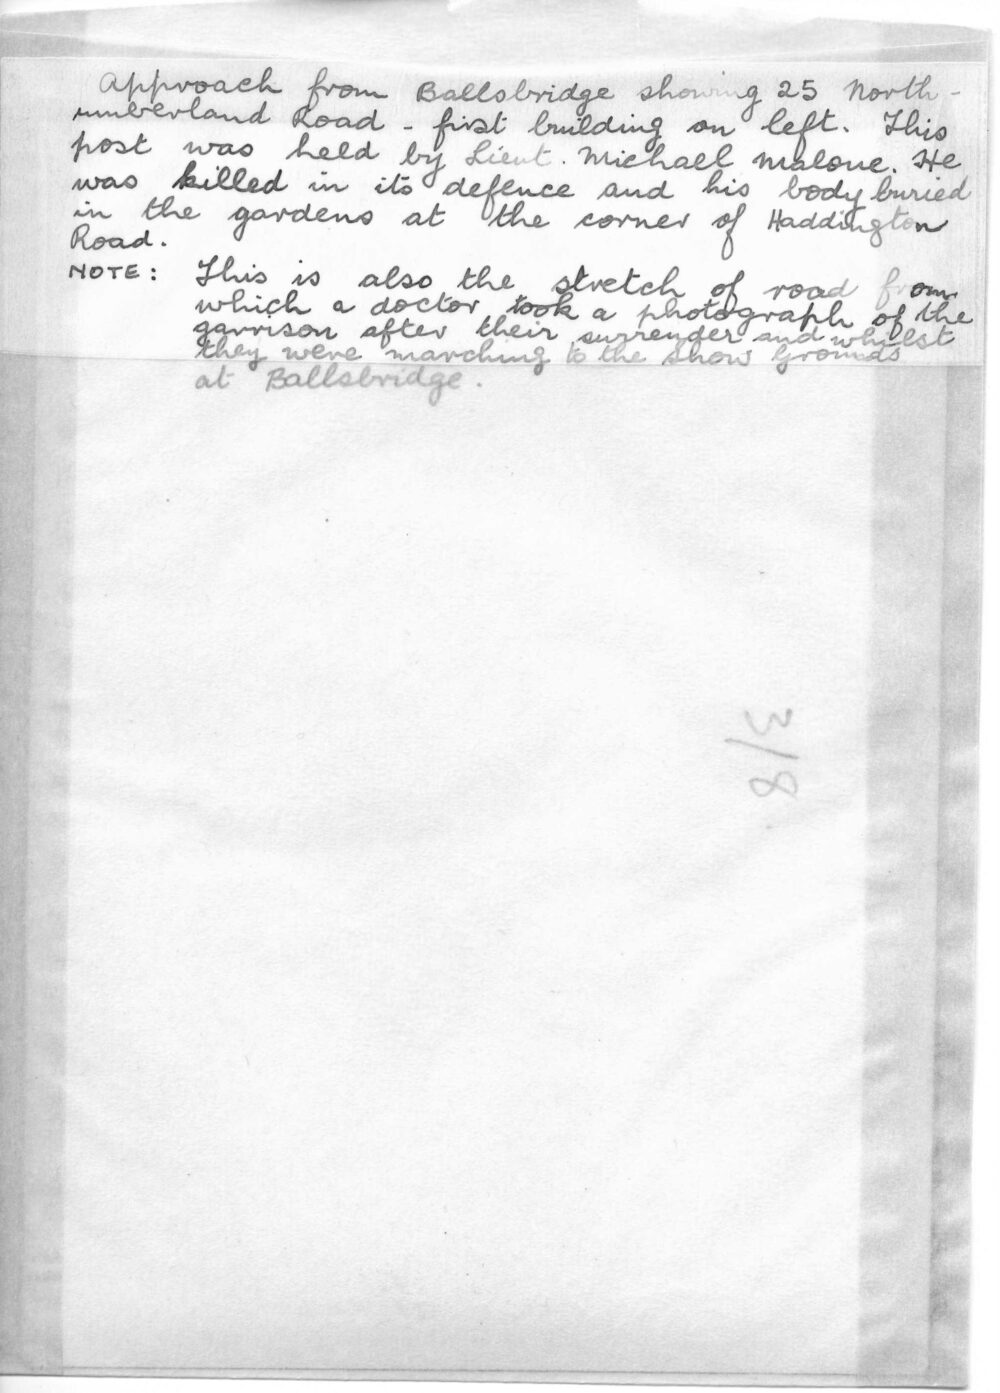 Approach from Ballsbridge showing 25 North-
umberland Road - first building on left. This
post was held by Lieut. Michael Malone. He
was killed in its defence and his body buried
in the gardens at the corner of Haddington
Road.
NOTE: This is also the stretch of road from
which a doctor took a photograph of the
garrison after their surrender and whilst
they were marching to the Show Grounds
at Ballsbridge.
3/8